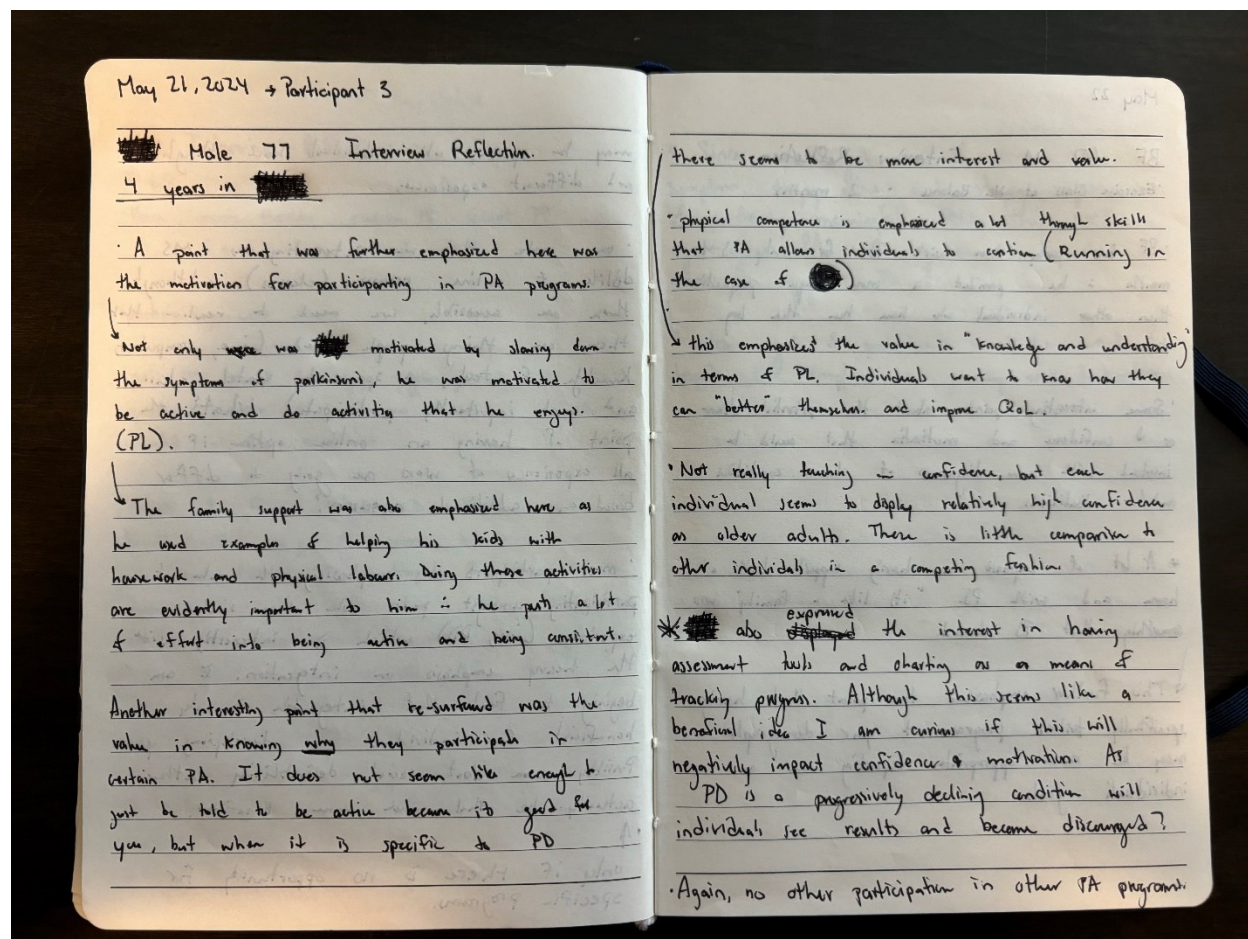 May 21, 2024 → Participant 3
Male 77 Interview Reflection.
4 years in
· A point that was further emphasized here was
the motivation for participanting in PA programs.
Not only was motivated by slowing down
the symptoms of parkinsons, he was motivated to
be active and do activities that he enjoys.
(PL).
The family support was also emphasized here as
he used examples of helping his kids with
housework and physical labour. Doing these activities
are evidently important to him ∴ he puts a lot
of effort into being active and being consistent.
Another interesting point that re-surfaced was the
value in knowing why they participate in
certain PA. It does not seem like enough to
just be told to be active because it good for
you, but when it is specific to PD
there seems to be more interest and value.
· physical competence is emphasized a lot through skills
that PA allows individuals to continue (Running in
the case of )
this emphasizes the value in "knowledge and understanding"
in terms of PL. Individuals want to know how they
can "better" themselves. and improve QoL.
· Not really touching confidence, but each
individual seems to display relatively high confidence
as older adults. There is little comparison to
other individals in a competing fashion.
* also expressed the interest in having
assessment tools and charting as a means of
tracking progress. Although this seems like a
beneficial idea I am curious if this will
negatively impact confidence & motivation. As
PD is a progressively declining condition will
individuals see results and become discouraged?
· Again, no other participation in other PA programs.